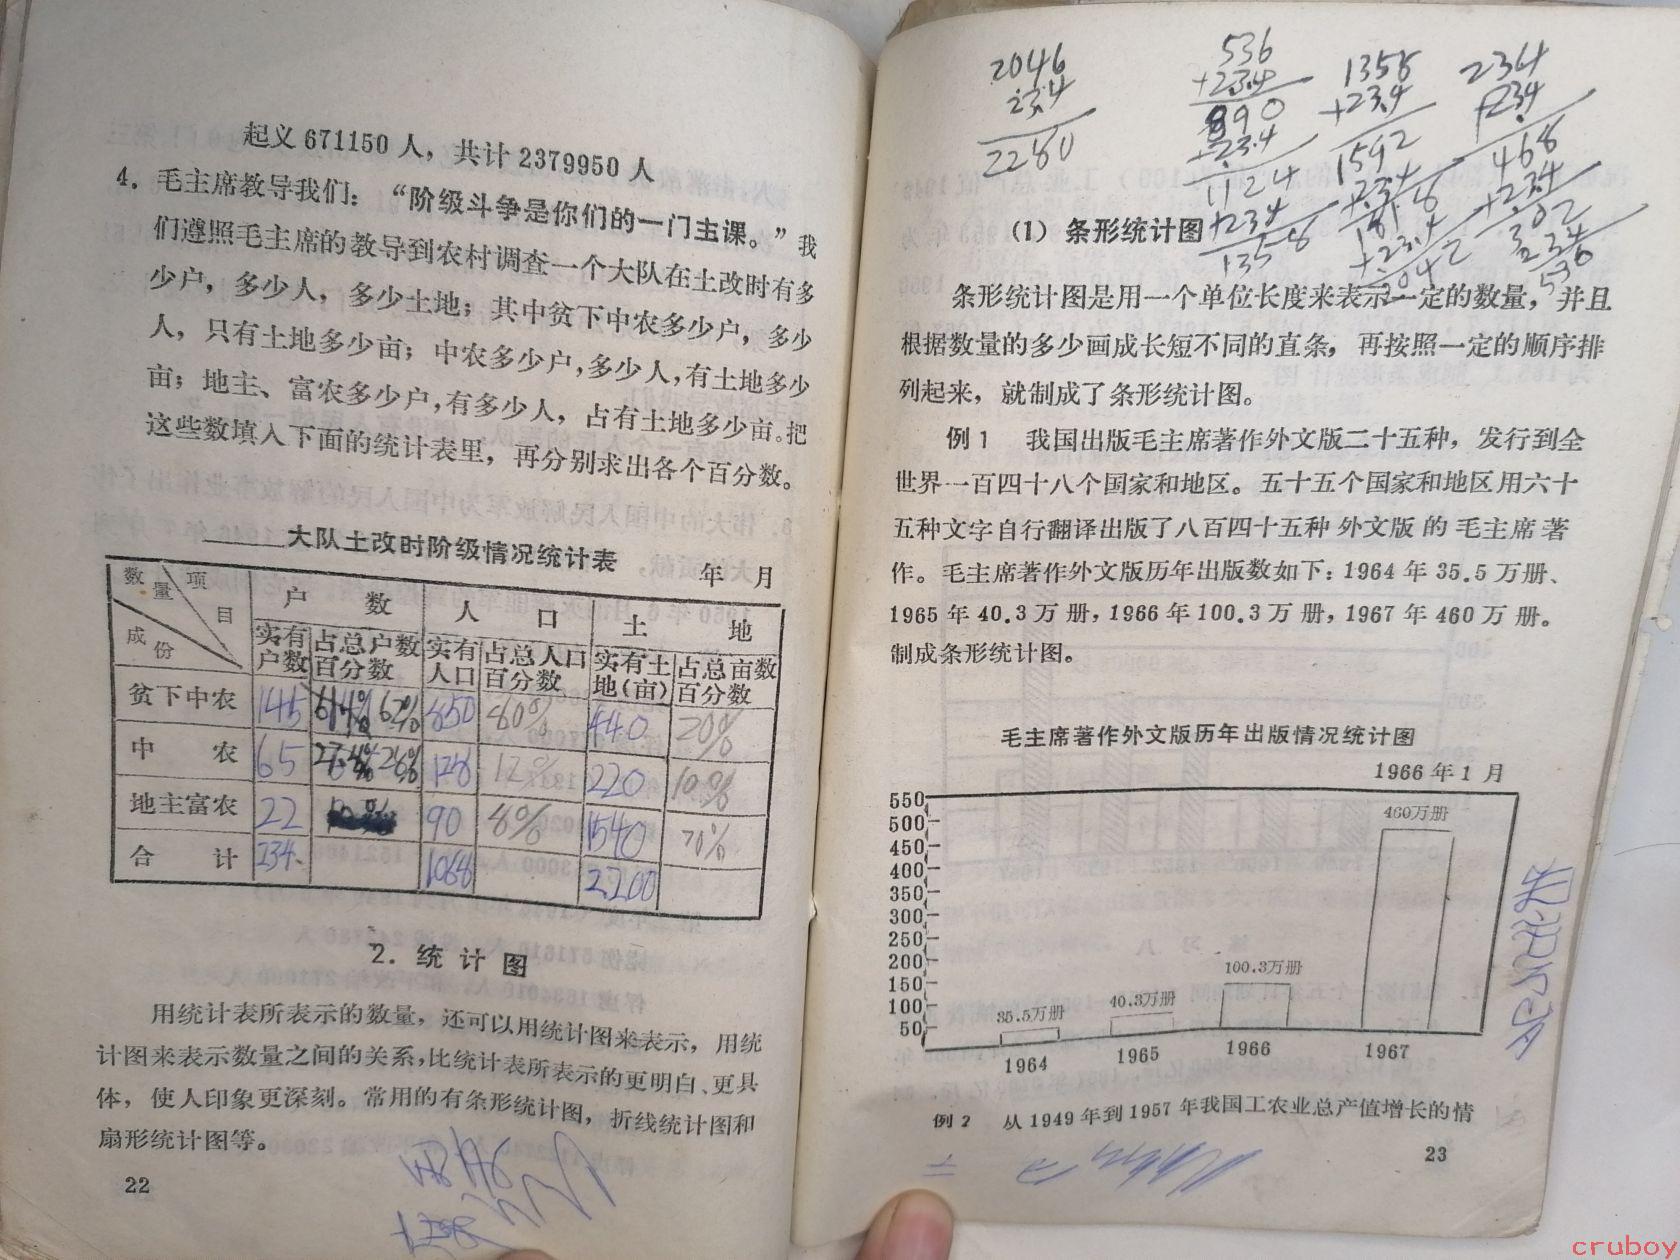 起义 671150 人，共计 2379950 人
4. 毛主席教导我们：“阶级斗争是你们的一门主课。”我
们遵照毛主席的教导到农村调查一个大队在土改时有多
少户，多少人，多少土地；其中贫下中农多少户，多少
人，只有土地多少亩；中农多少户，多少人，有土地多少
亩；地主、富农多少户，有多少人，占有土地多少亩。把
这些数填入下面的统计表里，再分别求出各个百分数。
大队土改时阶级情况统计表
年 月
数量 项目 成份
户 数 人 口 土 地
实有户数 占总户数百分数 实有人口 占总人口百分数 实有土地(亩) 占总亩数百分数
贫下中农 145 62% 850 80% 440 20%
中 农 65 26% 128 12% 220 10%
地主富农 22 90 8% 1540 70%
合 计 234 1068 2200
2. 统 计 图
用统计表所表示的数量，还可以用统计图来表示，用统
计图来表示数量之间的关系，比统计表所表示的更明白、更具
体，使人印象更深刻。常用的有条形统计图，折线统计图和
扇形统计图等。
22
2046
234
2280
536
+234
890
+234
1124
+234
1358
1358
+234
1592
+234
1818
+234
2042
234
+234
468
+234
302
234
536
(1) 条形统计图
条形统计图是用一个单位长度来表示一定的数量，并且
根据数量的多少画成长短不同的直条，再按照一定的顺序排
列起来，就制成了条形统计图。
例 1 我国出版毛主席著作外文版二十五种，发行到全
世界一百四十八个国家和地区。五十五个国家和地区用六十
五种文字自行翻译出版了八百四十五种外文版的毛主席著
作。毛主席著作外文版历年出版数如下：1964 年 35.5 万册、
1965 年 40.3 万册，1966 年 100.3 万册，1967 年 460 万册。
制成条形统计图。
毛主席著作外文版历年出版情况统计图
1966 年 1 月
550
500
450
400
350
300
250
200
150
100
50
35.5万册
40.3万册
100.3万册
460万册
1964 1965 1966 1967
例 2 从 1949 年到 1957 年我国工农业总产值增长的情
23
cruboy